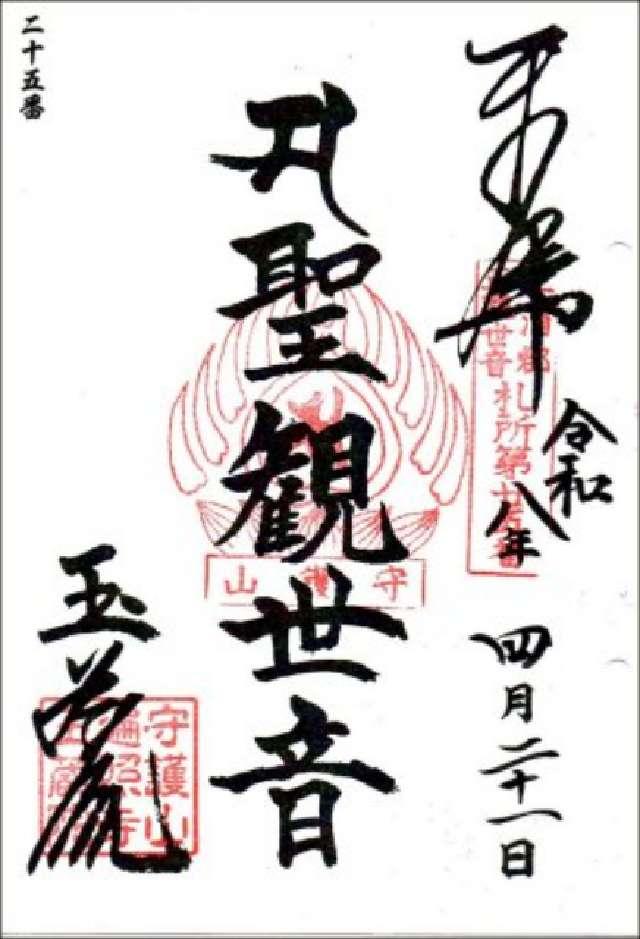 奉拝
令和八年
四月二十一日
札所第廿五番
聖観世音
守護山
二十五番
玉蔵院
守護山
遍照寺
玉蔵院